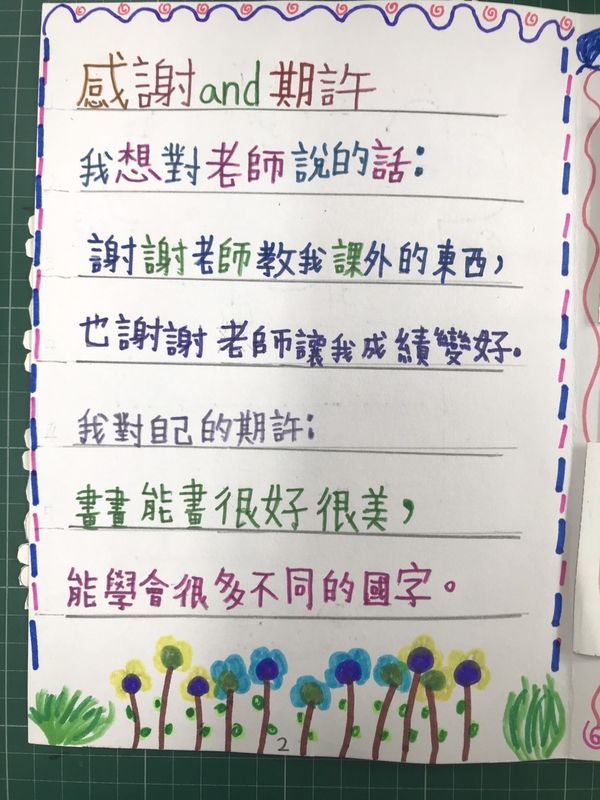 感謝and期許
我想對老師說的話：
謝謝老師教我課外的東西，
也謝謝老師讓我成績變好。
我對自己的期許：
畫畫能畫很好很美，
能學會很多不同的國字。
2